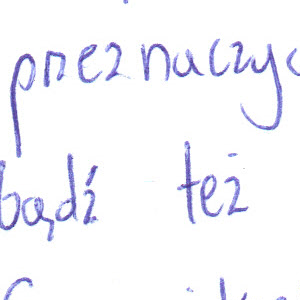 przeznaczyć
bądź też